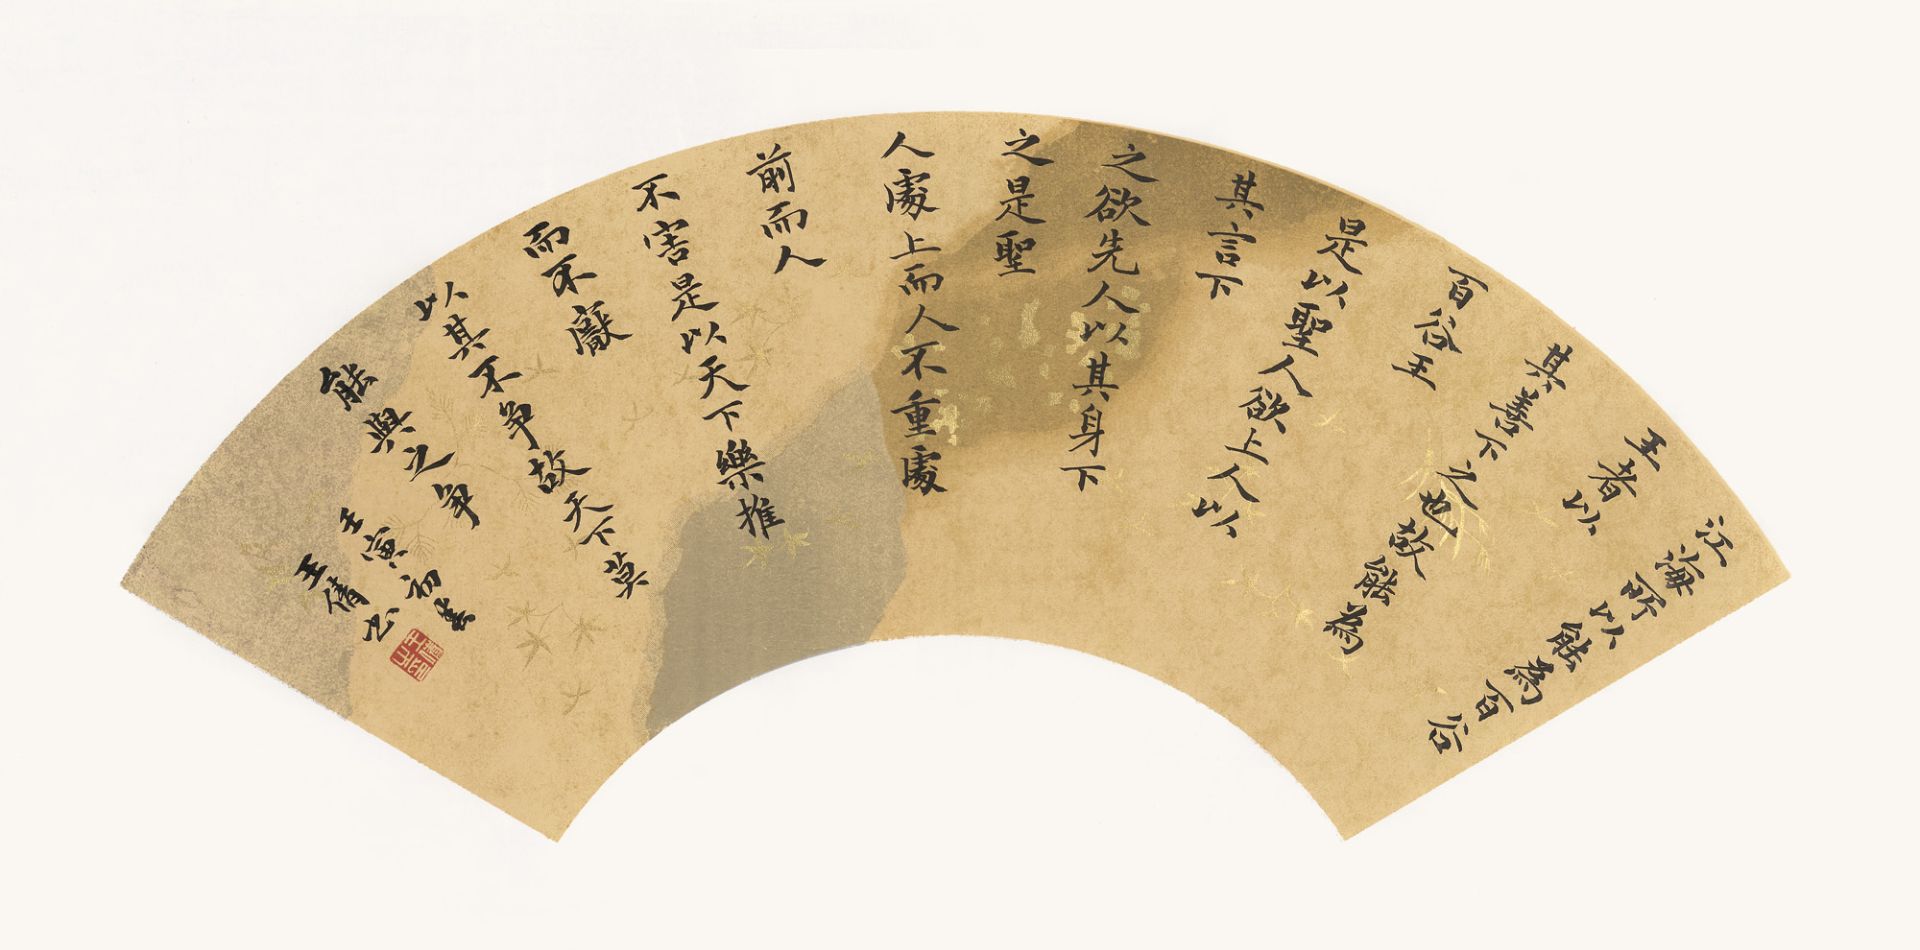 江海所以能為百谷
王者以
其善下之也故能為
百谷王
是以聖人欲上人以
其言下
之欲先人以其身下
之是聖
人處上而人不重處
前而人
不害是以天下樂推
而不厭
以其不争故天下莫
能與之争
壬寅初春
王倩书